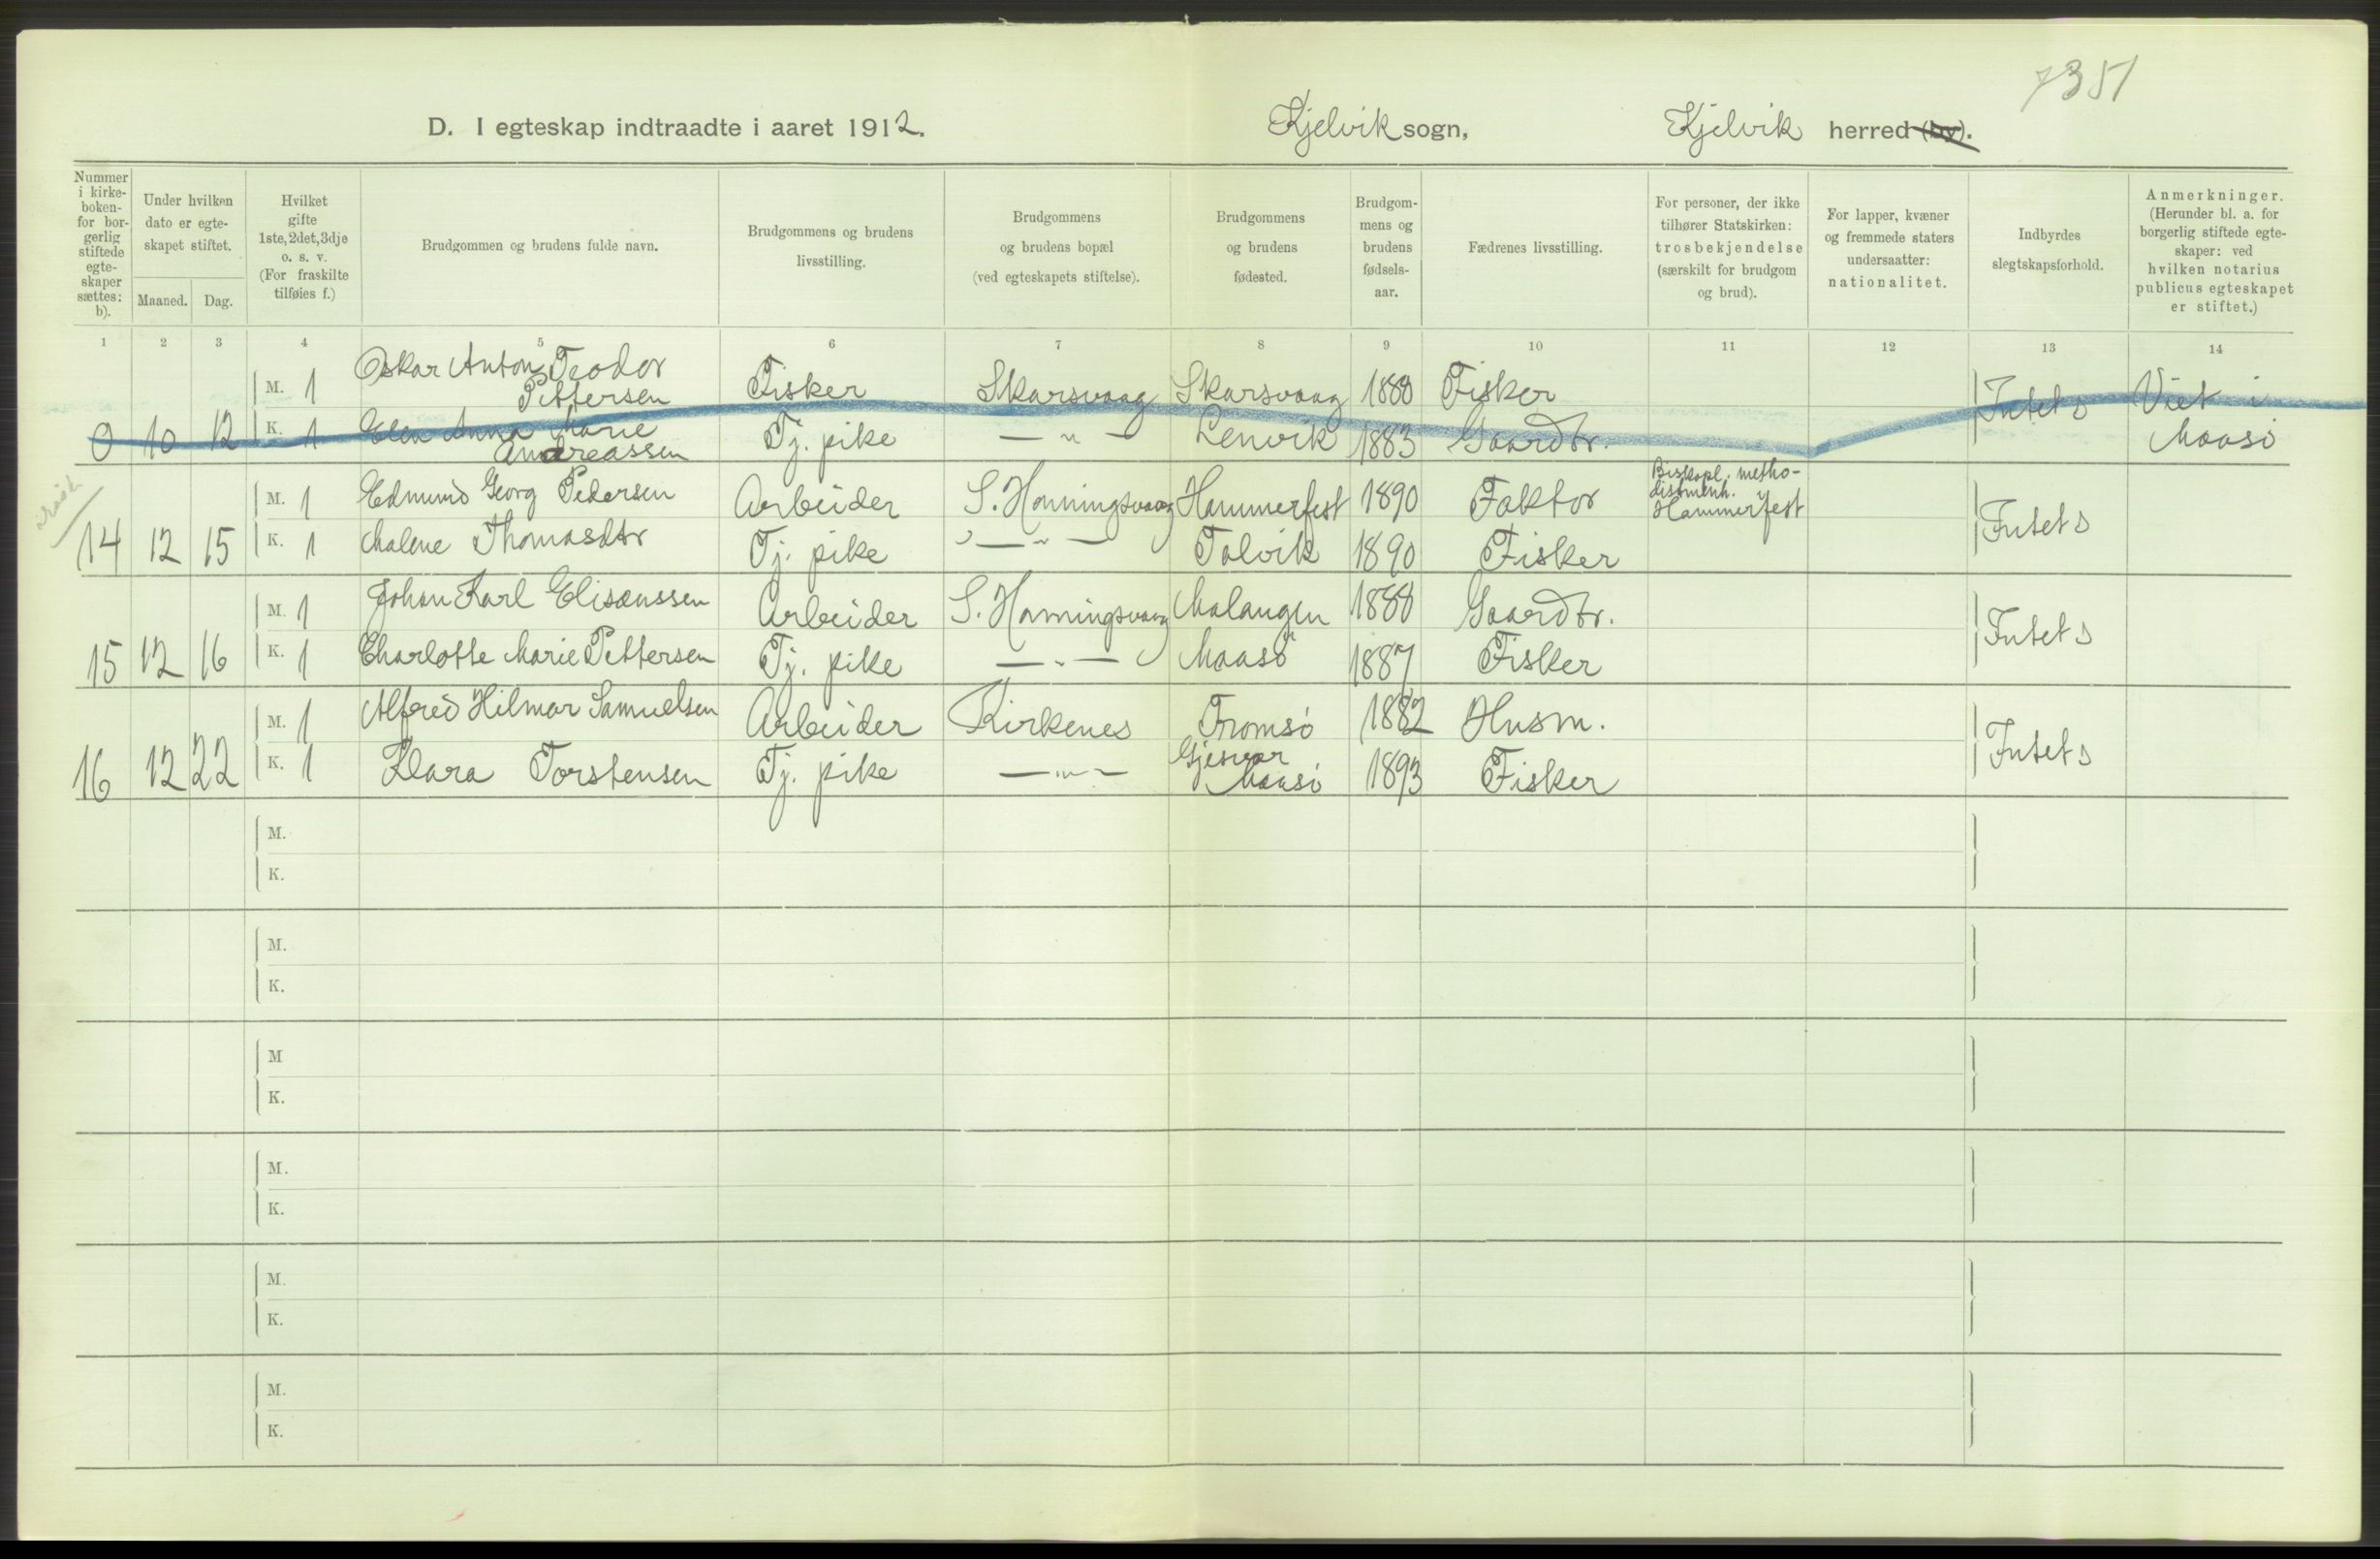 7351
D. I egteskap indtraadte i aaret 1912. Kjelvik sogn, Kjelvik herred (by).
Nummer i kirke-boken- for bor-gerlig stiftede egte-skaper sættes: b).
Under hvilken dato er egte-skapet stiftet.
Maaned. Dag.
Hvilket gifte 1ste, 2det, 3dje o. s. v. (For fraskilte tilføies f.)
Brudgommen og brudens fulde navn.
Brudgommens og brudens livsstilling.
Brudgommens og brudens bopæl (ved egteskapets stiftelse).
Brudgommens og brudens fødested.
Brudgom-mens og brudens fødsels-aar.
Fædrenes livsstilling.
For personer, der ikke tilhører Statskirken: trosbekjendelse (særskilt for brudgom og brud).
For lapper, kvæner og fremmede staters undersaatter: nationalitet.
Indbyrdes slegtskapsforhold.
Anmerkninger. (Herunder bl. a. for borgerlig stiftede egte-skaper: ved hvilken notarius publicus egteskapet er stiftet.)
1 2 3 4 5 6 7 8 9 10 11 12 13 14
M. 1 Oskar Anton Teodor Pettersen Fisker Skarsvaag Skarsvaag 1880 Fisker Intets Viet i Maasö
0 10 12 K. 1 Elen Anna Marie Andreassen Tj. pike — " — Lenvik 1883 Gaardbr.
M. 1 Edmund Georg Pedersen Arbeider S. Honningsvaag Hammerfest 1890 Faktor Biskopl. metho-distmenh. Hammerfest Intets
14 12 15 K. 1 Malene Thomasdtr Tj. pike — " — Talvik 1890 Fisker
M. 1 Johan Karl Elisæussen Arbeider S. Honningsvaag Malangen 1888 Gaardbr. Intets
15 12 16 K. 1 Charlotte Marie Pettersen Tj. pike — " — Maasö 1887 Fisker
M. 1 Alfred Hilmar Samuelsen Arbeider Kirkenes Tromsö 1882 Husm. Intets
16 12 22 K. 1 Klara Torstensen Tj. pike — " — Gjesvær Maasö 1893 Fisker
M.
K.
M.
K.
M
K.
M.
K.
M.
K.
M.
K.